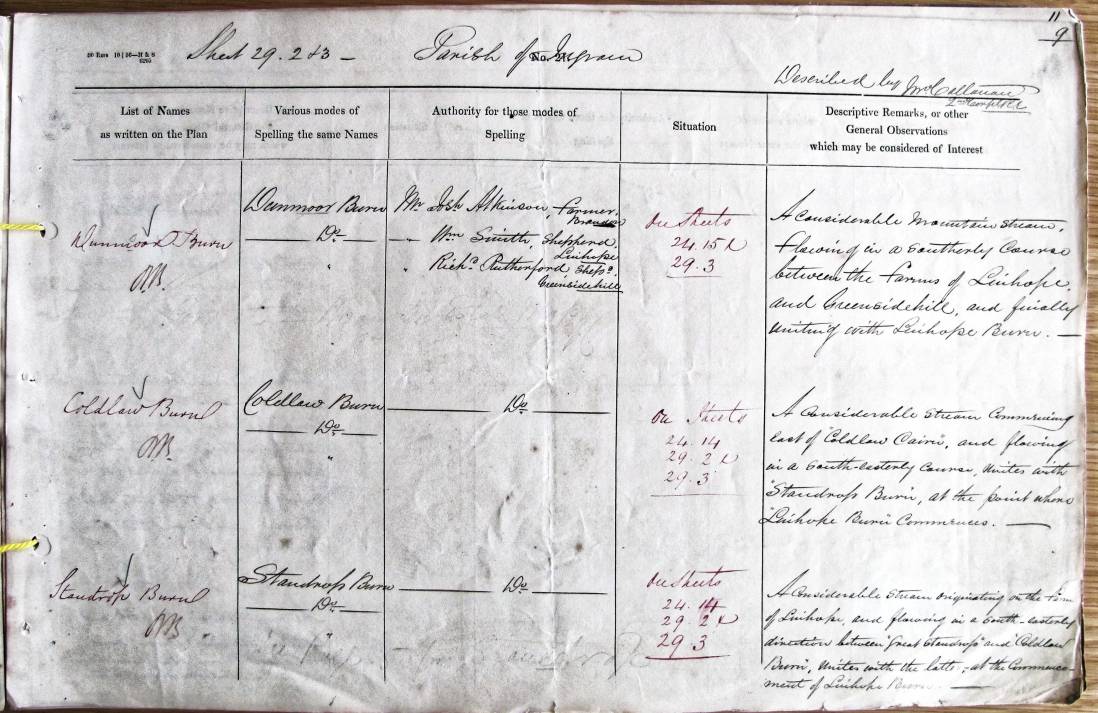 11
9
Sheet 29. 2 & 3 -
Parish of Ingram
Described by
List of Names
as written on the Plan
Various modes of
Spelling the same Names
Authority for those modes of
Spelling
Situation
Descriptive Remarks, or other
General Observations
which may be considered of Interest
Dunmoor Burn
Dunmoor Burn
Do
"
"
Mr Josh Atkinson, farmer,
Brandon
" Wm Smith, Shepherd,
Linhope
" Richd Rutherford Shepd.
Greensidehill
On Sheets
24.15 X
29.3
A Considerable Mountain Stream,
flowing in a Southerly Course
between the farms of Linhope
and Greensidehill, and finally
uniting with Linhope Burn. —
Coldlaw Burn
Coldlaw Burn
Do
"
Do
On Sheets
24.14
29.2 X
29.3
A Considerable Stream Commencing
East of "Coldlaw Cairn", and flowing
in a South-easterly Course, Unites with
"Standrop Burn", at the point where
"Linhope Burn" Commences. —
Standrop Burn
Standrop Burn
Do
"
Do
On Sheets
24.14
29.2 X
29.3
A Considerable Stream originating on the farm
of Linhope, and flowing in a South-easterly
direction between "Great Standrop" and "Coldlaw
Burn", Unites with the latter, at the Commence-
ment of Linhope Burn. —